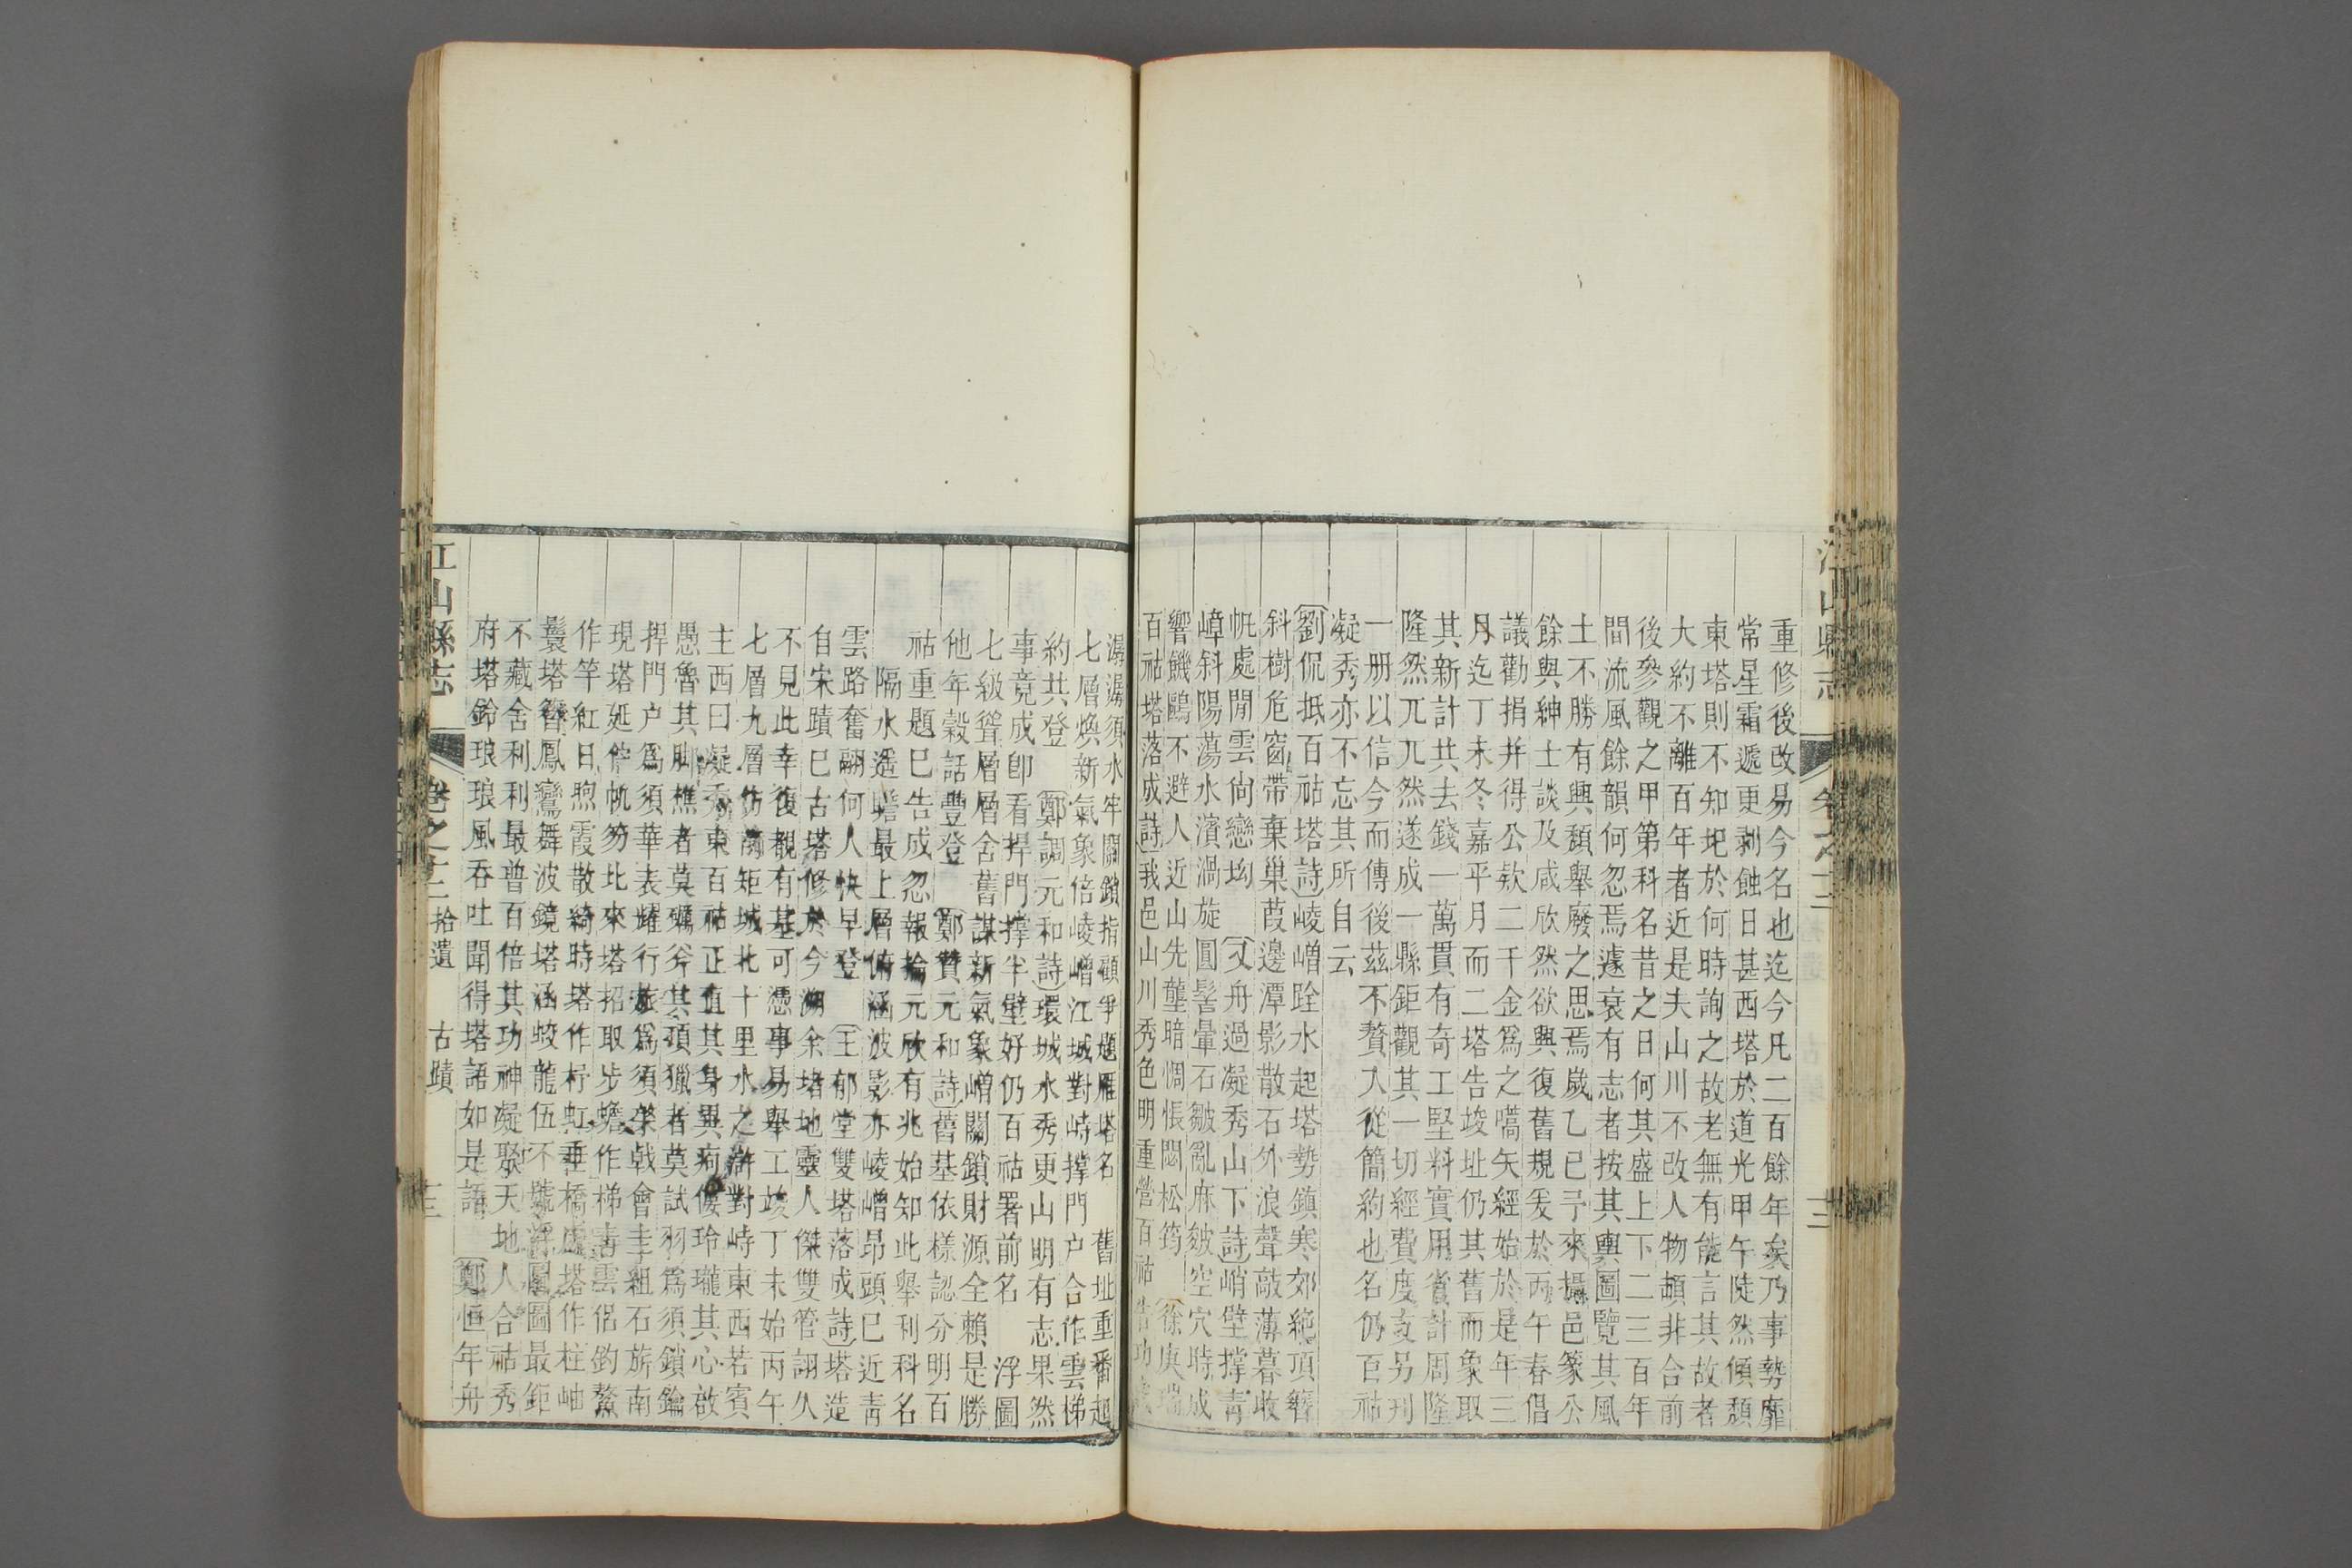 重修後改易今名也迄今凡二百餘年矣乃事勢靡
常星霜遞更剥蝕日甚西塔於道光甲午陡然傾頽
東塔則不知圯於何時詢之故老無有能言其故者
大約不離百年者近是夫山川不改人物頓非合前
後參觀之甲第科名昔之日何其盛上下二三百年
間流風餘韻何忽焉遽衰有志者按其輿圖覽其風
土不勝有興頽舉廢之思焉歲乙巳予來攝邑篆公
餘與紳士談及咸欣然欲興復舊規爰於丙午春倡
議勸捐并得公欵二千金爲之嚆矢經始於是年三
月迄丁未冬嘉平月而二塔告竣址仍其舊而象取
其新計共去錢一萬貫有奇工堅料實用省計周隆
隆然兀兀然遂成一縣鉅觀其一切經費度支另刋
一册以信今而傳後茲不贅入從簡約也名仍百祜
凝秀亦不忘其所自云
劉侃抵百祜塔詩崚嶒跧水起塔勢鎮寒郊絶頂簪
斜樹危窗帶棄巢葭邊潭影散石外浪聲敲薄暮收
帆處閒雲尙戀坳 又舟過凝秀山下詩峭壁撑青
嶂斜陽蕩水濱渦旋圓髻暈石皴亂麻皴空穴時成
響饑鷗不避人近山先壟暗惆悵悶松筠 徐庚瑞
百祜塔落成詩我邑山川秀色明重營百祜告功成
潺潺須水牢關鎖指顧爭題雁塔名 舊址重番起
七層煥新氣象倍崚嶒江城對峙撑門户合作雲梯
約共登 鄭調元和詩環城水秀更山明有志果然
事竟成卽看捍門撑半壁好仍百祜署前名 浮圖
七級聳層層舍舊謀新氣象嶒關鎖財源全賴是勝
他年榖話豐登 鄭贊元和詩舊基依樣認分明百
祜重題巳告成忽報掄元欣有兆始知此舉利科名
隔水遙瞻最上層俯涵波影亦崚嶒昂頭已近青
雲路奮翮何人快早登 王郁堂雙塔落成詩塔造
自宋蹟巳古塔修於今溯余堵地靈人傑雙管詡久
不見此幸復觀有基可憑事易舉工竣丁未始丙午
七層九層仿南矩城北十里水之滸對峙東西若賓
主西曰凝秀東百祜正值其身異疴僂玲瓏其心啟
愚魯其脚樵者莫礪斧其項獵者莫試羽爲須鎖鑰
捍門户爲須華表耀行旅爲須棨戟會圭組石旂南
現塔延佇帆笏北來塔招取步蟾作梯害雲侣釣鰲
作竿紅日煦霞散綺時塔作杼虹垂橋處塔作柱岫
鬟塔簪鳳鸞舞波鏡塔涵蛟龍伍不號浮圖圖最鉅
不藏舍利利最普百倍其功神凝聚天地人合祜秀
府塔鈴琅琅風吞吐聞得塔語如是語 鄭恒年舟
江山縣志
卷之十二 拾遺 古蹟
十三